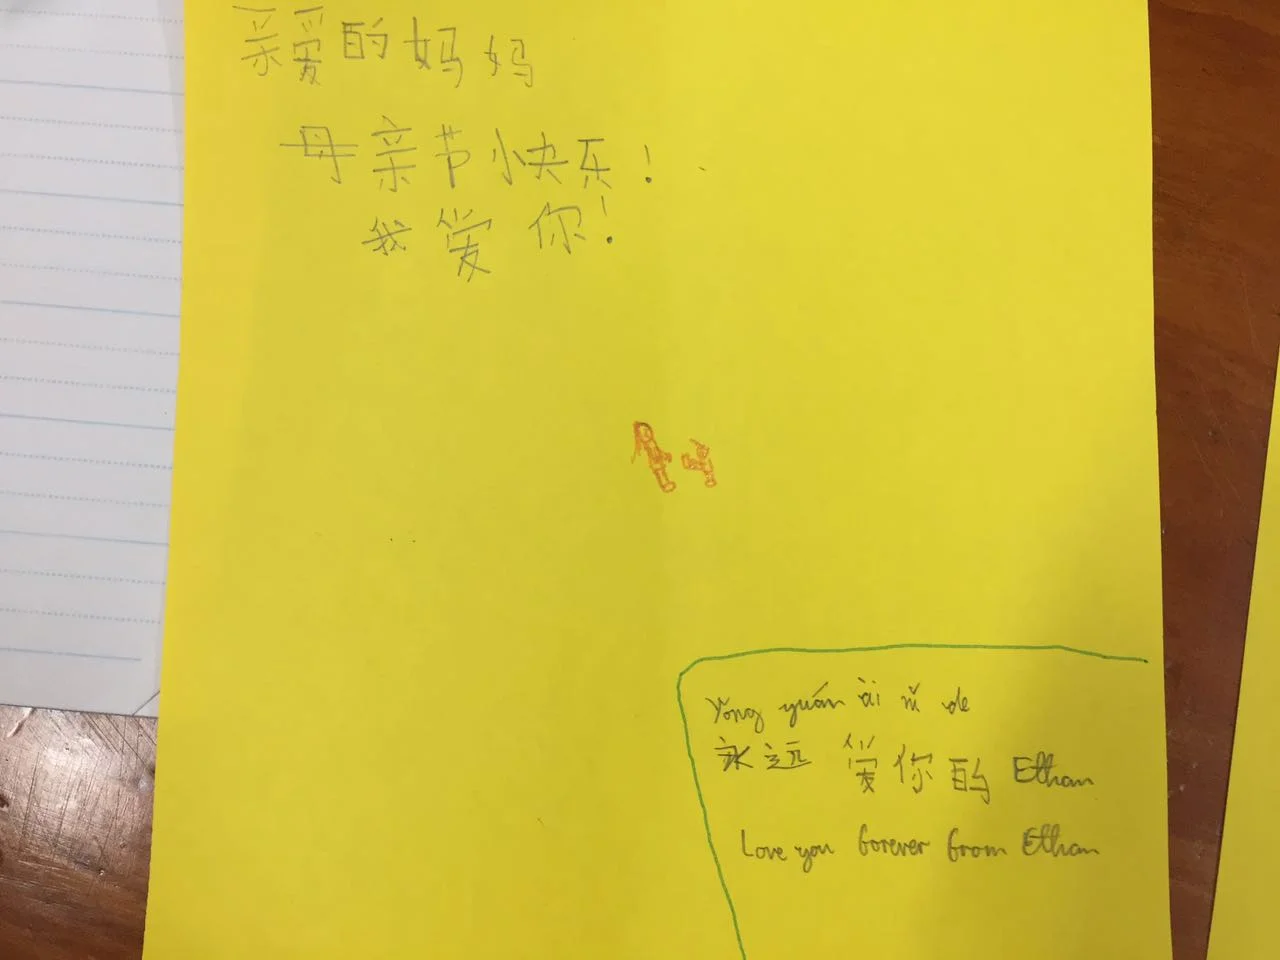 亲爱的妈妈
母亲节快乐!
我爱你!
Yǒng yuán ài nǐ de
永远 爱你的 Ethan
Love you forever from Ethan